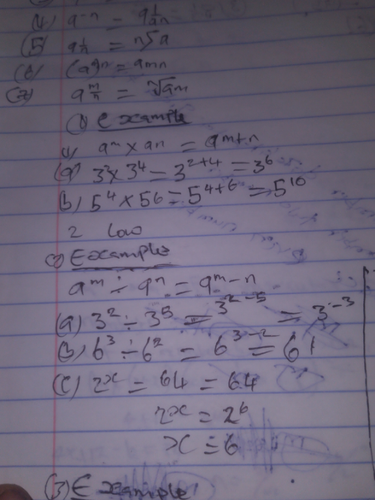 (4) a-n = 1/an
(5) a1/n = n√a
(6) (am)n = amn
(7) a m/n = n√am
(1) Example
(1) am x an = am+n
(a) 3² x 3⁴ = 3²⁺⁴ = 3⁶
(b) 5⁴ x 56 = 5⁴⁺⁶ = 5¹⁰
2 law
(2) Example
aᵐ ÷ aⁿ = aᵐ⁻ⁿ
(a) 3² ÷ 3⁵ = 3²⁻⁵ = 3⁻³
(b) 6³ ÷ 6² = 6³⁻² = 61
(c) 2x = 64 = 64
2x = 2⁶
x = 6
(3) Example